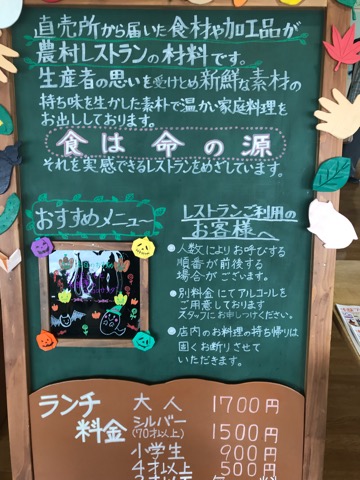 直売所から届いた食材や加工品が
農村レストランの材料です。
生産者の思いを受けとめ新鮮な素材の
持ち味を生かした素朴で温かい家庭料理を
お出ししております。
食は命の源
それを実感できるレストランをめざしています。
おすすめメニュー
レストランご利用の
お客様へ
●人数によりお呼びする
順番が前後する
場合がございます。
●別料金にてアルコールを
ご用意しております
スタッフにお申しつけください。
●店内のお料理の持ち帰りは
固くお断りさせて
いただきます。
ランチ
料金
大人 1700円
シルバー
(70才以上) 1500円
小学生 900円
4才以上 500円